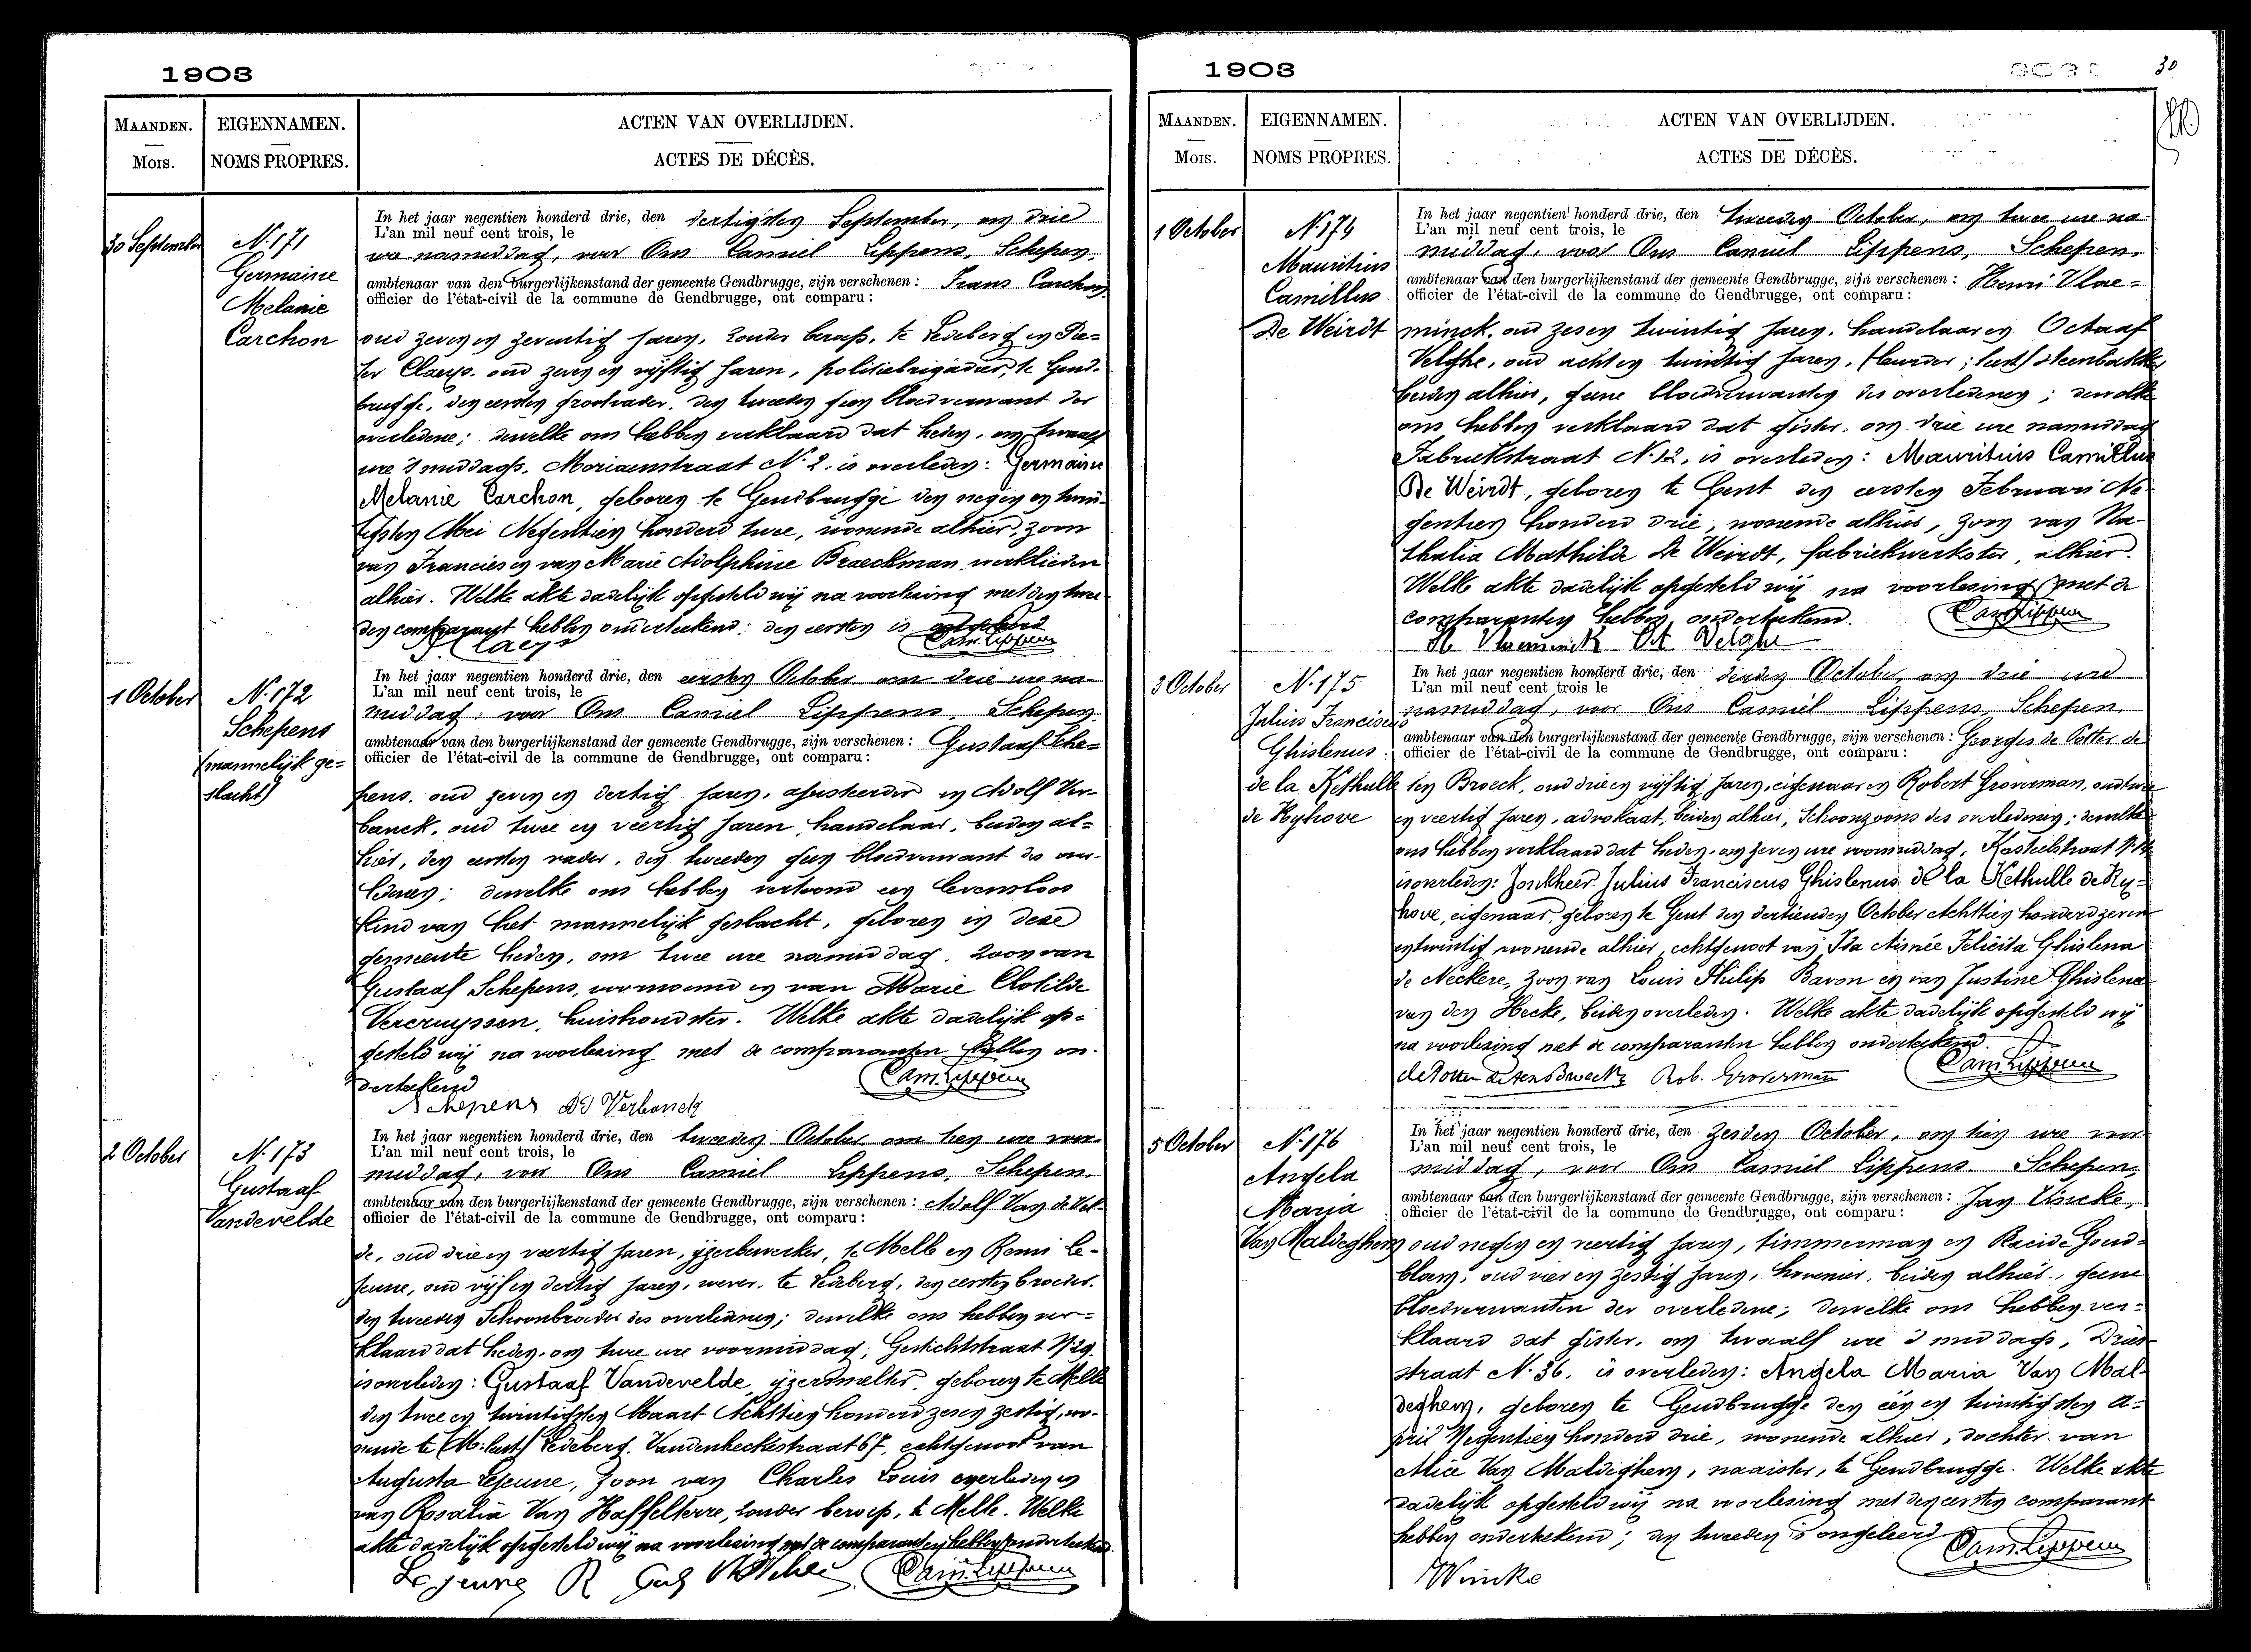 1903
MAANDEN.
Mois.
EIGENNAMEN.
NOMS PROPRES.
ACTEN VAN OVERLIJDEN.
ACTES DE DÉCÈS.
30 September
N. 171
Germaine
Melanie
Carchon
In het jaar negentien honderd drie, den dertigsten September, om drie
L'an mil neuf cent trois, le
ure namiddag, voor Ons Camiel Lippens, Schepen,
ambtenaar van den burgerlijkenstand der gemeente Gendbrugge, zijn verschenen: Frans Carchon,
officier de l'état-civil de la commune de Gendbrugge, ont comparu:
oud zeven en zeventig jaren, zonder beroep, te Ledeberg en Pie-
ter Claeys, oud zeven en vijftig jaren, politiebrigadier, te Gend-
brugge, den eersten grootvader, den tweeden geen bloedverwant der
overledene; dewelke ons hebben verklaard dat heden, om twaalf
ure 's middags, Moriaenstraat N. 2, is overleden: Germaine
Melanie Carchon, geboren te Gendbrugge den negen en twin-
tigsten Mei Negentien honderd twee, wonende alhier, zoon
van Francies en van Marie Adolphine Braeckman, werklieden
alhier. Welke akte dadelijk opgesteld wij na voorlezing met den twee-
den comparant hebben onderteekend; den eersten is ongeleerd
P Claeys
Cam. Lippens
1 October
N. 172
Schepens
(mannelijk ge=
slacht)
In het jaar negentien honderd drie, den eersten October om drie ure na-
L'an mil neuf cent trois, le
middag, voor Ons Camiel Lippens, Schepen,
ambtenaar van den burgerlijkenstand der gemeente Gendbrugge, zijn verschenen: Gustaaf Sche=
officier de l'état-civil de la commune de Gendbrugge, ont comparu:
pens, oud zeven en dertig jaren, en Adolf Ver-
banck, oud twee en veertig jaren, handelaar, beiden al=
hier, den eersten vader, den tweeden geen bloedverwant des over-
ledenen; dewelke ons hebben vertoond een levensloos
kind van het mannelijk geslacht, geboren in deze
gemeente heden, om twee ure namiddag, zoon van
Gustaaf Schepens, voornoemd en van Marie Clotilde
Vercruyssen, huishoudster. Welke akte dadelijk op=
gesteld wij na voorlezing met de comparanten hebben on-
derteekend
Cam. Lippens
Schepens Ad Verbanck
2 October
N. 173
Gustaaf
Vandevelde
In het jaar negentien honderd drie, den tweeden October om tien ure voor-
L'an mil neuf cent trois, le
middag, voor Ons Camiel Lippens, Schepen,
ambtenaar van den burgerlijkenstand der gemeente Gendbrugge, zijn verschenen: Adolf Van de Vel-
officier de l'état-civil de la commune de Gendbrugge, ont comparu:
de, oud drie en veertig jaren, ijzerbewerker, te Melle en Remi Le-
jeune, oud vijf en dertig jaren, wever, te Ledeberg, den eersten broeder,
den tweeden Schoonbroeder des overledenen; dewelke ons hebben ver=
klaard dat heden, om twee ure voormiddag, Gestichtstraat N. 29,
is overleden: Gustaaf Vandevelde, ijzersmelter, geboren te Melle
den twee en twintigsten Maart Achttien honderd zes en zestig, wo-
nende te Ledeberg, Vandenheckestraat 67, echtgenoot van
Augusta Lejeune, zoon van Charles Louis overleden en
van Rosalia Van Hasselterre, zonder beroep, te Melle. Welke
akte dadelijk opgesteld wij na voorlezing met de comparanten hebben onderteekend.
Le jeune R
Cam. Lippens
1903
30
MAANDEN.
Mois.
EIGENNAMEN.
NOMS PROPRES.
ACTEN VAN OVERLIJDEN.
ACTES DE DÉCÈS.
1 October
N. 174
Mauritius
Camillus
De Weirdt
In het jaar negentien honderd drie, den tweeden October, om twee ure na-
L'an mil neuf cent trois, le
middag, voor Ons Camiel Lippens, Schepen,
ambtenaar van den burgerlijkenstand der gemeente Gendbrugge, zijn verschenen: Henri Vlae=
officier de l'état-civil de la commune de Gendbrugge, ont comparu:
minck, oud zes en twintig jaren, handelaar en Octaaf
Velghe, oud acht en twintig jaren, steenbakker
beiden alhier, geene bloedverwanten des overledenen; dewelke
ons hebben verklaard dat gister, om drie ure namiddag
Fabriekstraat N. 12, is overleden: Mauritius Camillus
De Weirdt, geboren te Gent den eersten Februari Ne-
gentien honderd drie, wonende alhier, zoon van Na-
thalia Mathilde De Weirdt, fabriekwerkster, alhier.
Welke akte dadelijk opgesteld wij na voorlezing met de
comparanten hebben onderteekend.
Cam. Lippens
H Vlaeminck Oct. Velghe
3 October
N. 175
Julius Franciscus
Ghislenus
de la Kethulle
de Ryhove
In het jaar negentien honderd drie, den derden October, om drie ure
L'an mil neuf cent trois le
namiddag, voor Ons Camiel Lippens, Schepen,
ambtenaar van den burgerlijkenstand der gemeente Gendbrugge, zijn verschenen: Georges de Potter de
officier de l'état-civil de la commune de Gendbrugge, ont comparu:
ten Broeck, oud drie en vijftig jaren, eigenaar en Robert Groverman, oud twee
en veertig jaren, advokaat, beiden alhier, Schoonzoons des overledenen; dewelke
ons hebben verklaard dat heden, om zeven ure voormiddag, Kasteelstraat
is overleden: Jonkheer Julius Franciscus Ghislenus de la Kethulle de Ry=
hove, eigenaar, geboren te Gent den dertienden October Achttien honderd zeven
en twintig wonende alhier, echtgenoot van Ida Aimée Felicita Ghislena
de Neckere, zoon van Louis Philip Bavon en van Justine Ghislena
van den Hecke, beiden overleden. Welke akte dadelijk opgesteld wij
na voorlezing met de comparanten hebben onderteekend.
de Potter de ten Broeck Rob. Groverman
Cam. Lippens
5 October
N. 176
Angela
Maria
Van Maldeghem
In het jaar negentien honderd drie, den zesden October, om tien ure voor
L'an mil neuf cent trois, le
middag, voor Ons Camiel Lippens, Schepen,
ambtenaar van den burgerlijkenstand der gemeente Gendbrugge, zijn verschenen: Jan Vincke,
officier de l'état-civil de la commune de Gendbrugge, ont comparu:
oud negen en veertig jaren, timmerman en Placide Goud=
blom, oud vier en zestig jaren, hovenier, beiden alhier, geene
bloedverwanten der overledene; dewelke ons hebben ver=
klaard dat gister, om twaalf ure 's middags, Dries
straat N. 36, is overleden: Angela Maria Van Mal-
deghem, geboren te Gendbrugge den één en twintigsten A=
pril Negentien honderd drie, wonende alhier, dochter van
Alice Van Maldeghem, naaister, te Gendbrugge. Welke akte
dadelijk opgesteld wij na voorlezing met den eersten comparant
hebben onderteekend; den tweeden is ongeleerd
Cam. Lippens
Wincke